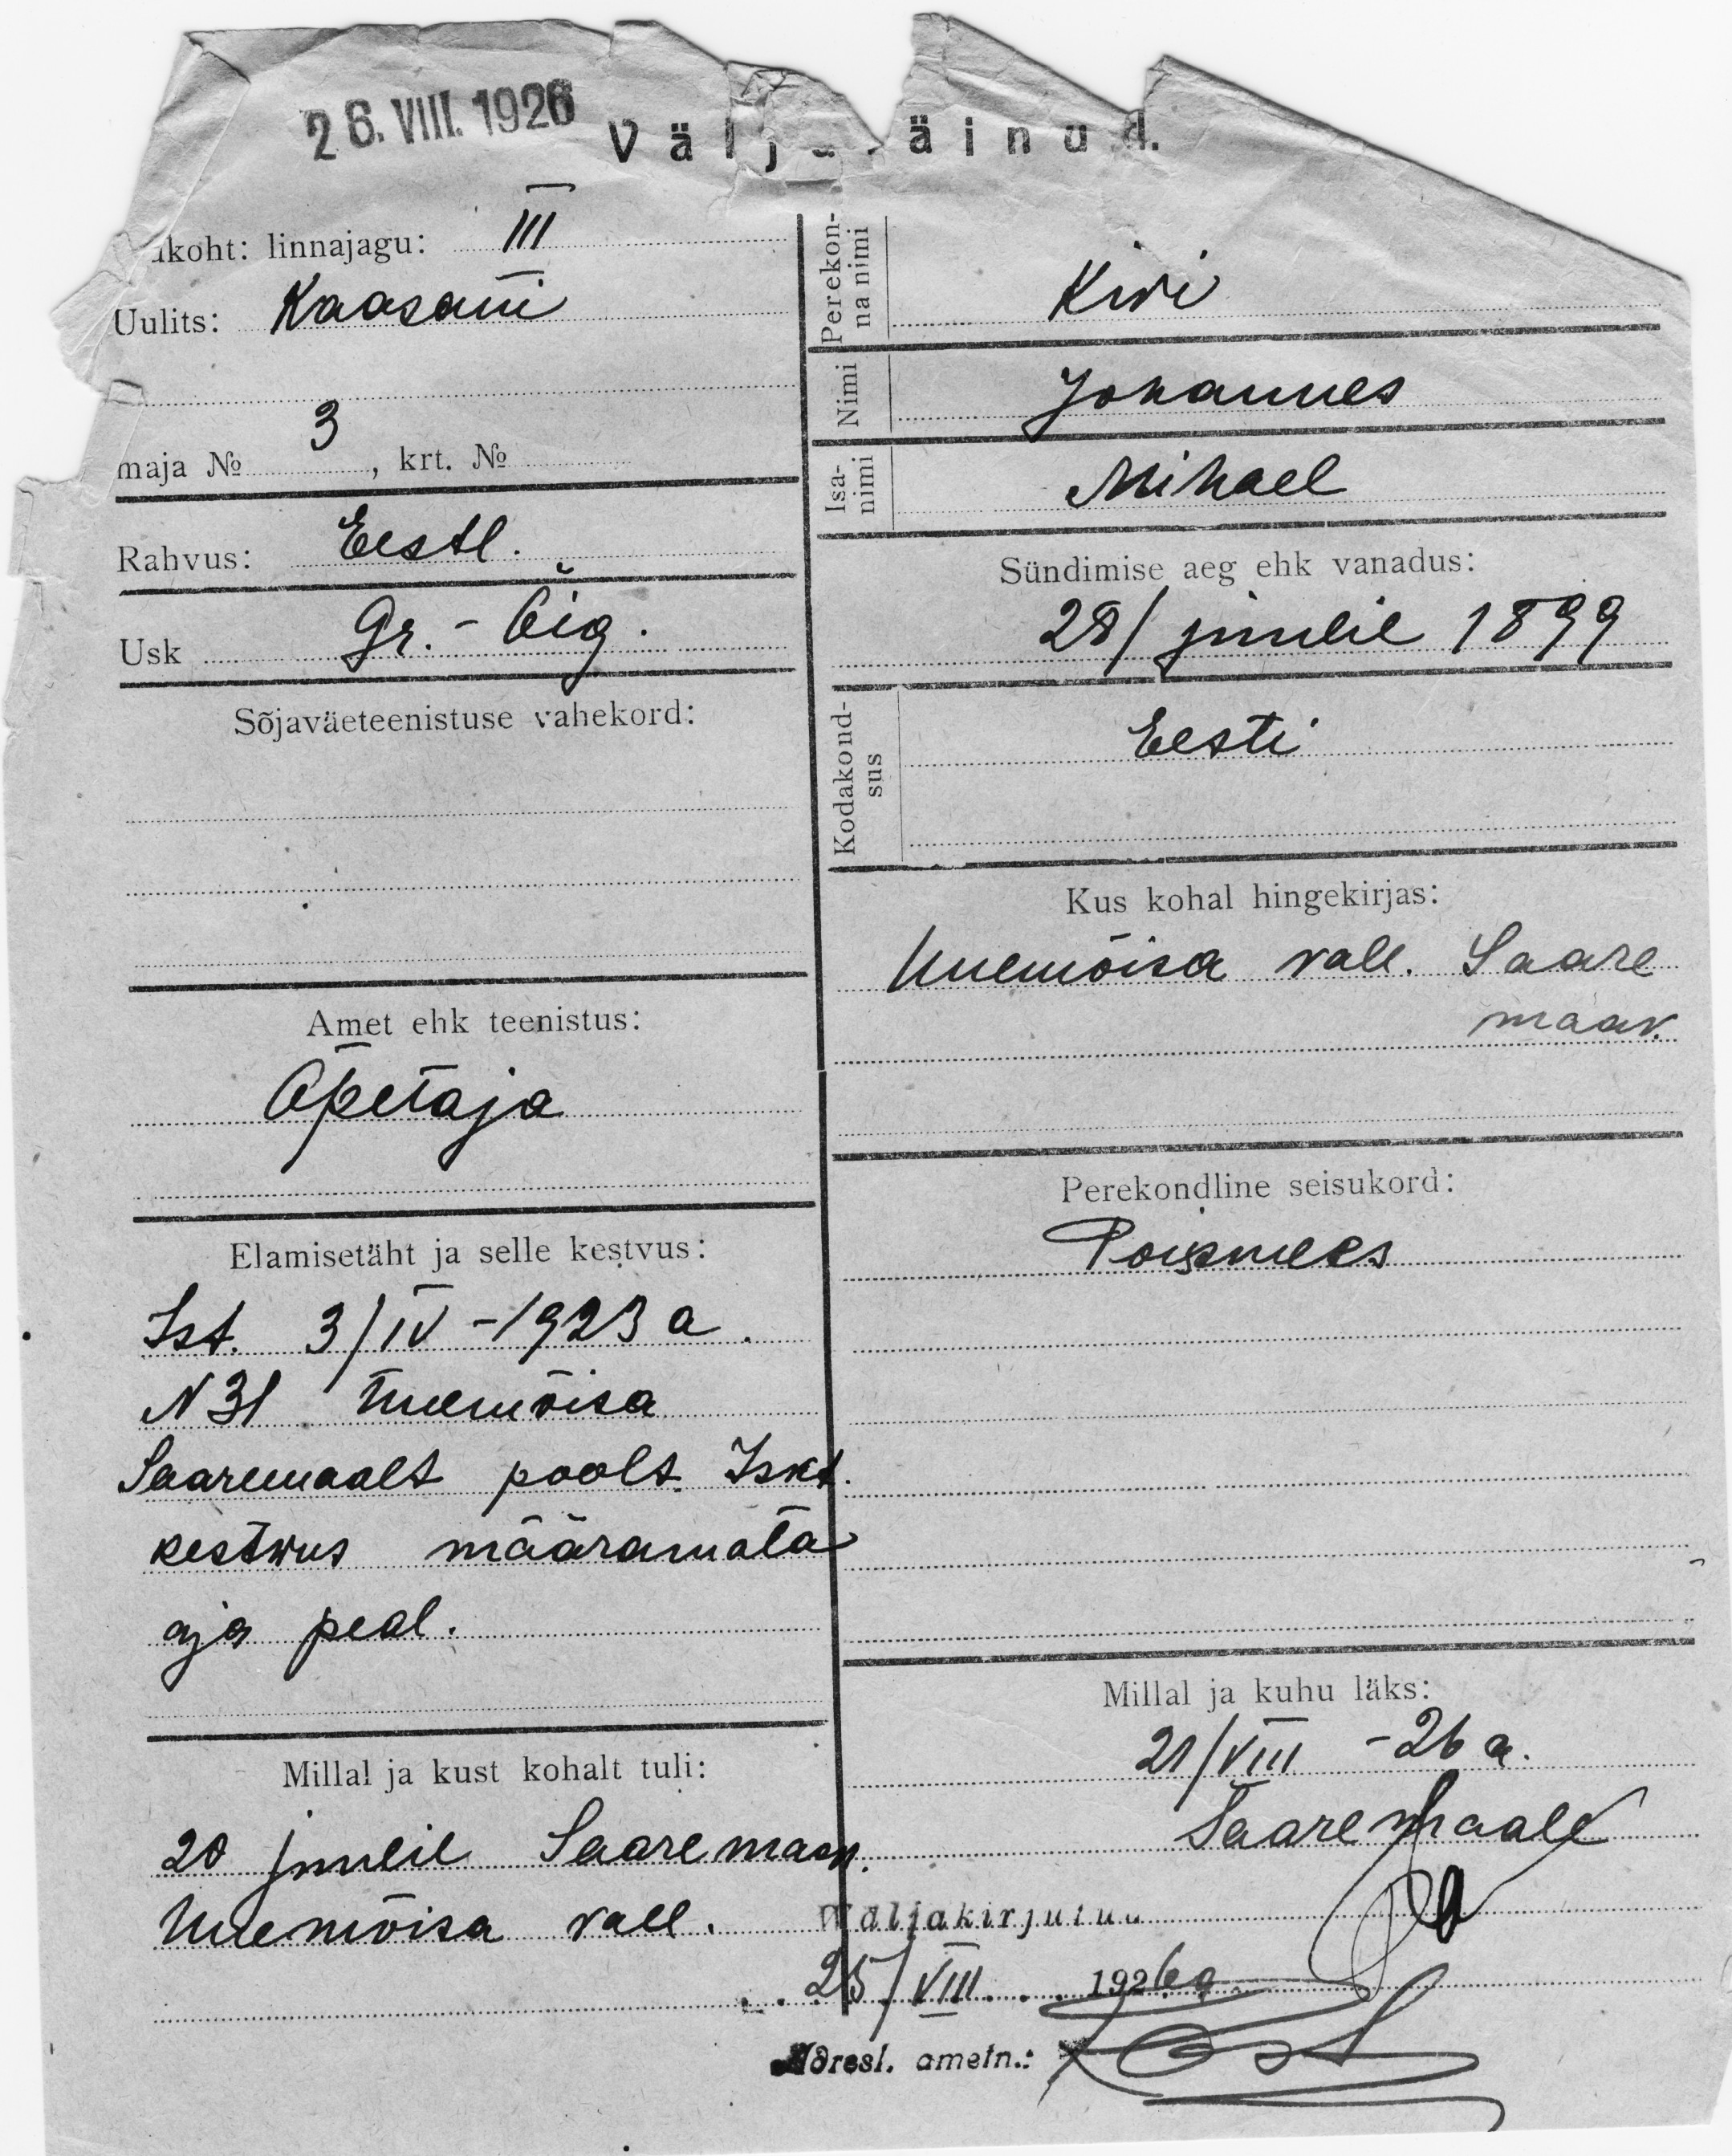 26. VIII. 1926
Välja äinud.
koht: linnajagu: III
Uulits: Kaasani
maja № 3, krt. №
Rahvus: Eestl.
Usk Gr.-Õig.
Sõjaväeteenistuse vahekord:
Amet ehk teenistus:
Õpetaja
Elamisetäht ja selle kestvus:
Ist. 3/IV-1923 a.
N 31 Uuemõisa
Saaremaalt poolt. Iskt.
kestwus määramata
aja peal.
Millal ja kust kohalt tuli:
20 juulil Saaremaa
Uuemõisa vall.
Perekonna nimi
Kiwi
Nimi
Johannes
Isa-
nimi
Mihael
Sündimise aeg ehk vanadus:
28/ juulil 1899
Kodakond-
sus
Eesti
Kus kohal hingekirjas:
Uuemõisa vall. Saare
maav.
Perekondline seisukord:
Poismees
Millal ja kuhu läks:
21/VIII -26 a.
Saaremaale
Wäljakirjutud
25/VIII 1926 a
Adresl. ametn.: